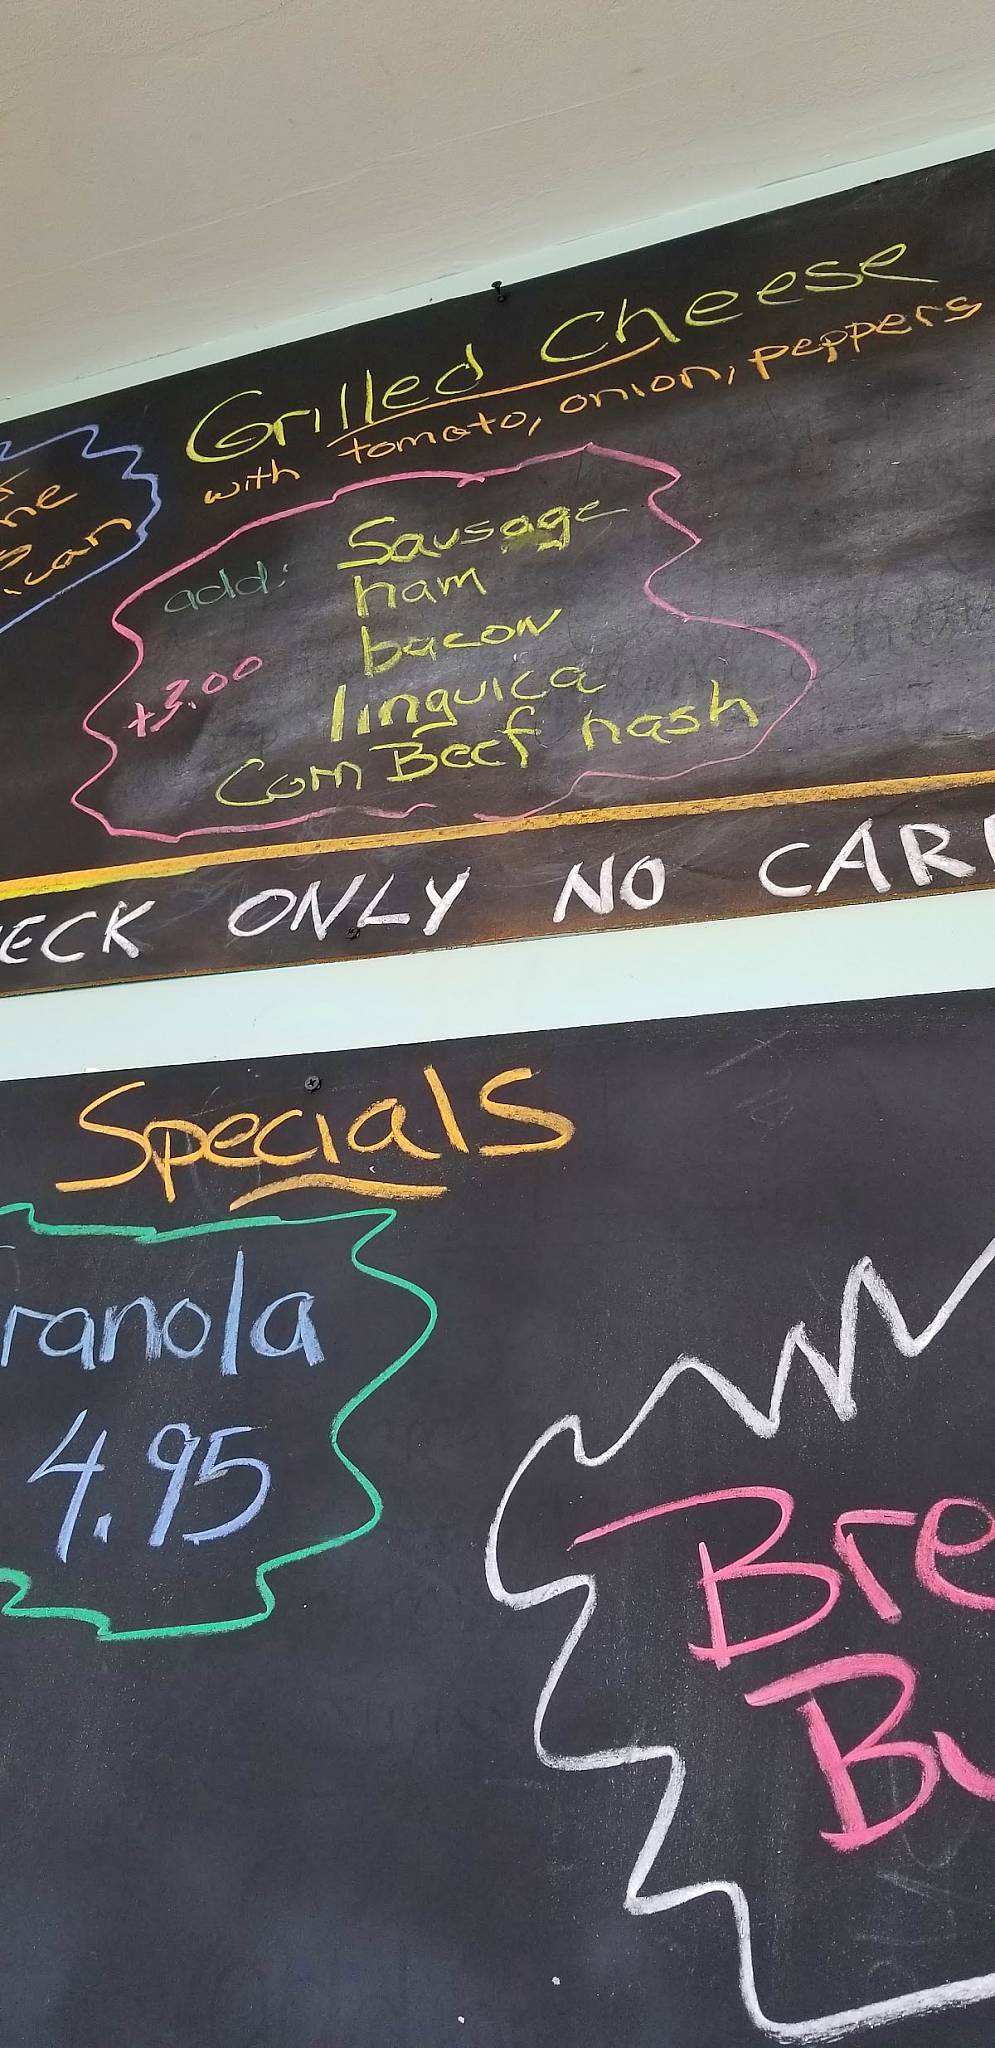 Grilled Cheese
with tomato, onion, peppers
add: Sausage
ham
bacon
+3.00
linguica
Corn Beef hash
ECK ONLY NO CAR
Specials
ranola
4.95
Bre
Bu